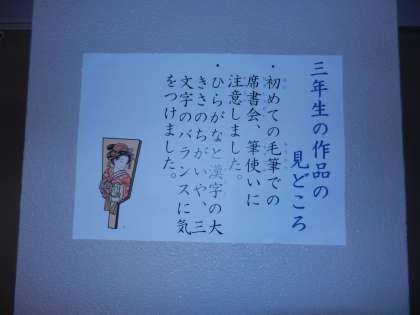 三年生の作品の
見どころ
・初めての毛筆での
席書会、筆使いに
注意しました。
・ひらがなと漢字の大
きさのちがいや、三
文字のバランスに気
をつけました。